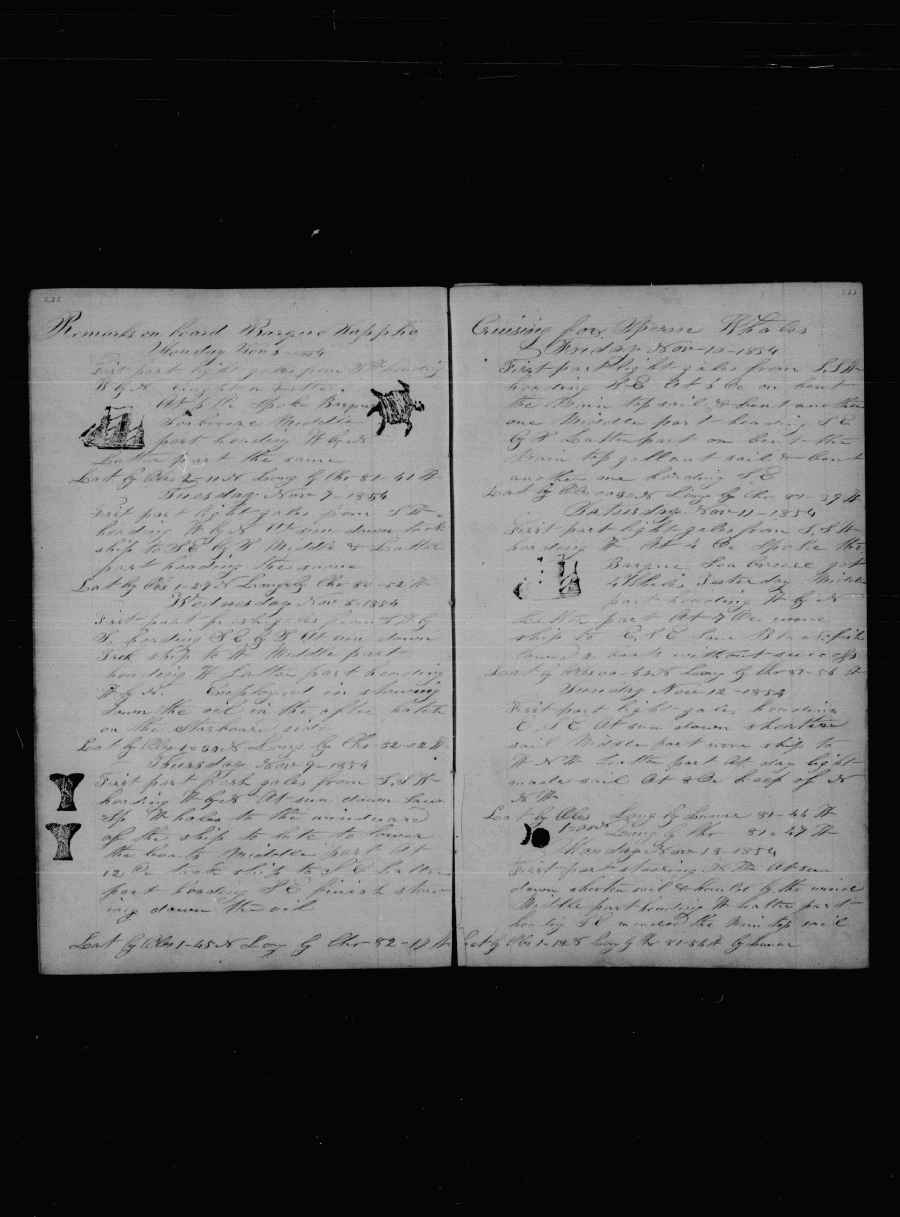 222
Remarks on board Barque Sappho
Monday Nov 6-1854
First part light gales from heading
W by N Caught a turtle
At 5 Oc Spoke Barque
Seabreeze Middle
part heading W by N
Latter part the same
Lat by Obs 2-11 N Long by Chr 81-41 W
Tuesday Nov 7-1854
First part light gales from S W
heading W by N At sun down tack
ship to S E by S Middle & Latter
part heading the same
Lat by Obs 1-27 N Long by Chr 80-52 W
Wednesday Nov 8-1854
First part fresh gales from S W by
S heading S E by S At sun down
Tack ship to W Middle part
heading W Latter part heading
W by N. Employed in stowing
down the oil in the after hatch
on the Starboard side
Lat by Obs 1-30 N Long by Chr 82-12 W
Thursday Nov 9-1854
First part fresh gales from S, S W
heading W by N At sun down saw
Sp Whales to the windward
of the ship to late to lower
the boats Middle part At
12 Oc tack ship to S E Latter
part heading S E finish stow
ing down the oil
Lat by Obs 1-45 N Long by Chr 82-17 W
223
Cruising for Sperm Whales
Friday Nov-10-1854
First part light gales from S, S W
heading S E At 5 Oc on bent
the Main top sail & bent another
one Middle part heading S E
by S Latter part on bent the
Main top gallant sail & bent
another one heading S E
Lat by Obs 00 30 N Long by Chr 81-39 W
Saturday Nov-11-1854
First part light gales from S, S W
heading W At 4 Oc Spoke the
Barque Sea breeze got
4 Whales Yesterday Middle
part heading W by N
Latter part At 7 Oc wore
ship to E, S E saw Blackfish
lowerd 2 boats without success
Lat by Obs 00-43 N Long by Chr 81-54 W
Sunday Nov-12-1854
First part light gales heading
E S E At sun down shorten
sail Middle part wore ship to
W N W Latter part At day light
made sail At 8 Oc keep of N
N W
Lat by Obs Long by Lunar 81-44 W
1-00 N Long by Chr 81-47 W
Monday Nov-13-1854
First part steering N W At sun
down shorten sail & to the wind
Middle part heading W Latter part
heading S E mended the Main top sail
Lat by Obs 1-18 N Long by Chr 81-54 W by Lunar